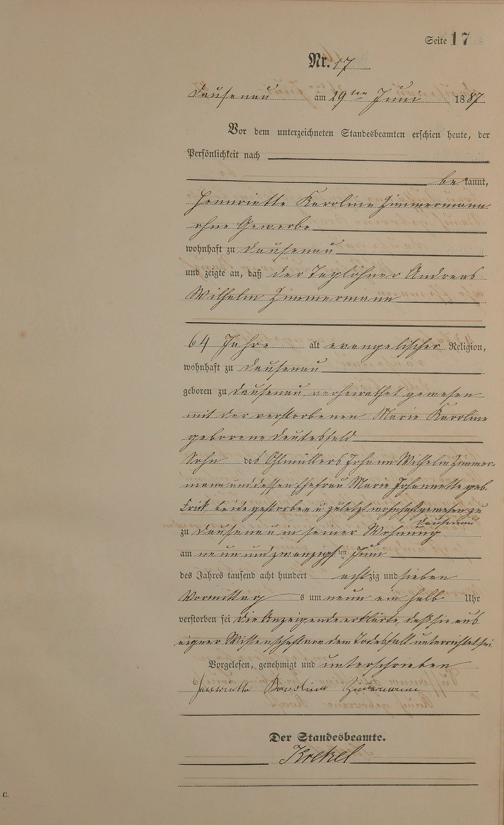 Seite 17
Nr. 17
Dausenau am 29ten Juni 1887
Vor dem unterzeichneten Standesbeamten erschien heute, der
Persönlichkeit nach
bekannt,
Henriette Karoline Zimmermann
ohne Gewerbe
wohnhaft zu Dausenau
und zeigte an, daß der Taglöhner Andreas
Wilhelm Zimmermann
64 Jahre alt evangelischer Religion,
wohnhaft zu Dausenau
geboren zu Dausenau verheirathet gewesen
mit der verstorbenen Marie Karoline
geborene
Sohn des Ohlmüllers Johann Wilhelm Zimmer-
mann und dessen Ehefrau Marie Johannette geb.
beide gestorben u zuletzt wohnhaft gewesen zu
Dausenau
zu Dausenau in seiner Wohnung
am neun und zwanzigsten Juni
des Jahrs tausend acht hundert achtzig und sieben
Vormittags um neun ein halb Uhr
verstorben sei die Anzeigende erklärte, daß sie aus
eigner Wissenschaft von dem Todesfall unterrichtet sei
Vorgelesen, genehmigt und unterschrieben
Henriette Karolina Zimmermann
Der Standesbeamte.
C.